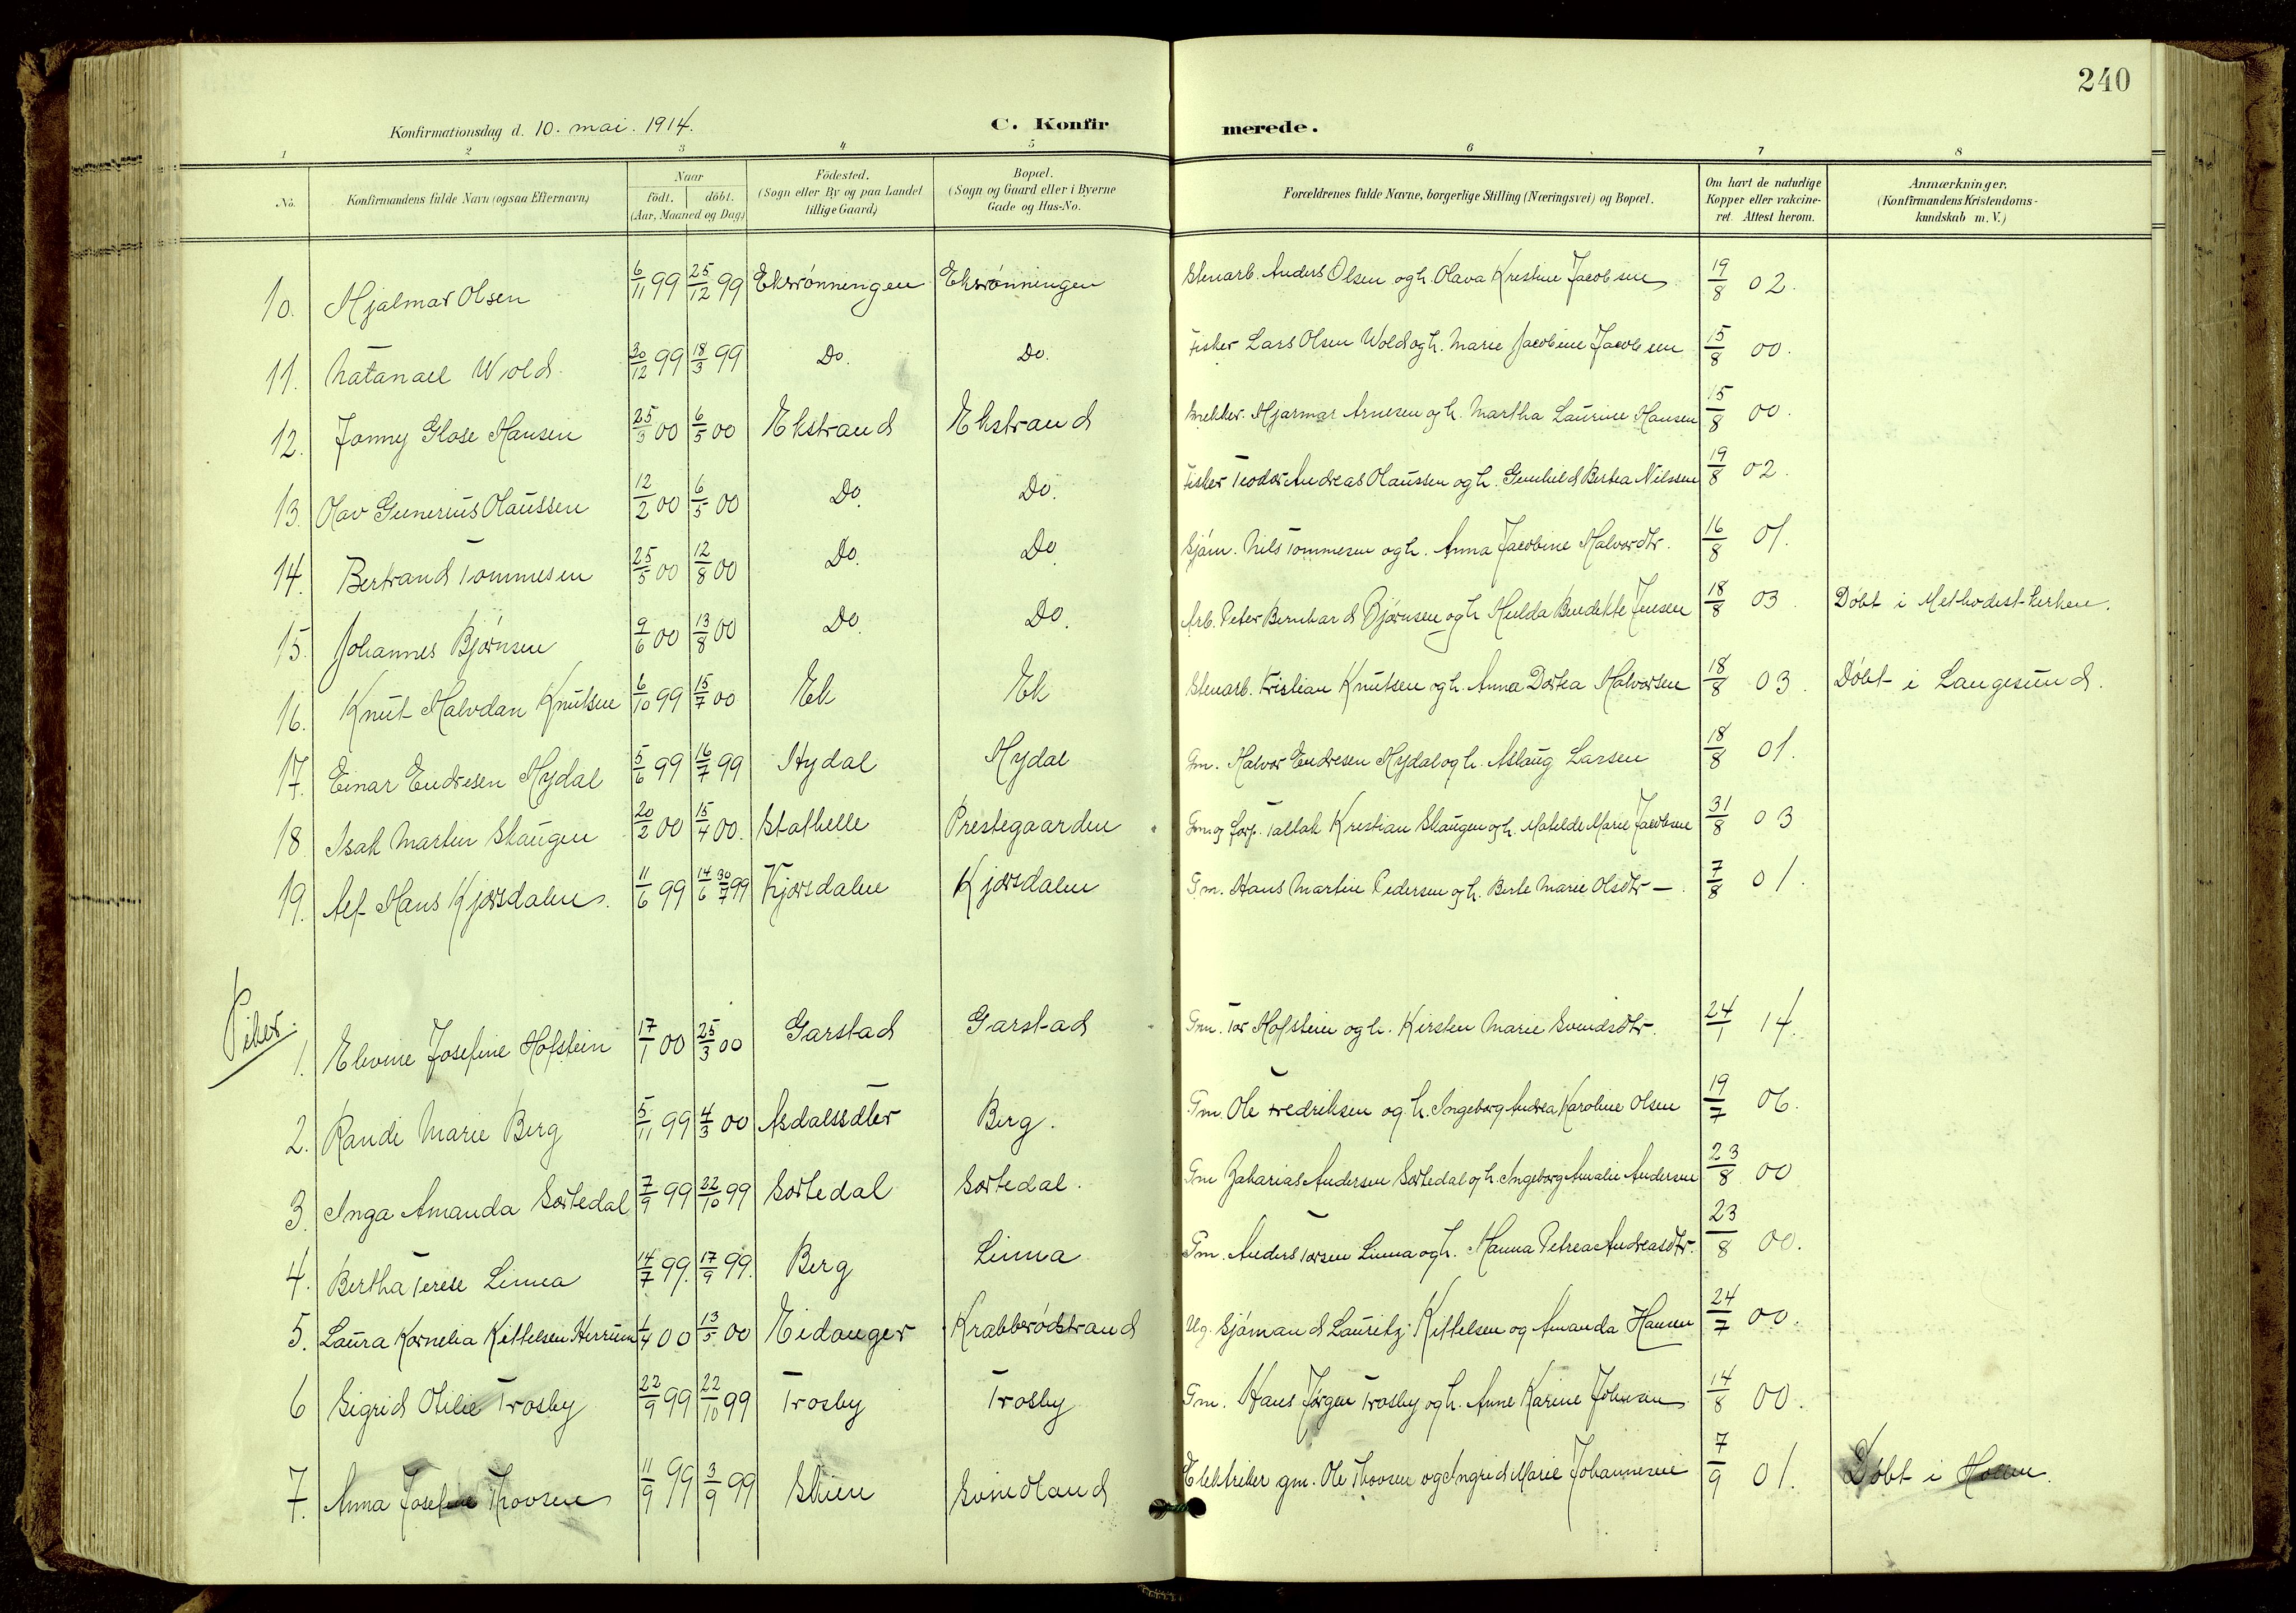 240
Konfirmationsdag d. 10. mai. 1914.
C. Konfirmerede.
1 2 3 4 5 6 7 8
No. | Konfirmandens fulde Navn (ogsaa Efternavn) | Naar födt. döbt. (Aar, Maaned og Dag) | Födested. (Sogn eller By og paa Landet tillige Gaard) | Bopæl. (Sogn og Gaard eller i Byerne Gade og Hus-No. | Forældrenes fulde Navne, borgerlige Stilling (Næringsvei) og Bopæl. | Om havt de naturlige Kopper eller vakcineret. Attest herom. | Anmærkninger. (Konfirmandens Kristendomskundskab m. V.)
10. Hjalmar Olsen 6/11 99 25/12 99 Ekrønningen Ekrønningen Stenarb. Anders Olsen og h. Olava Kristine Jacobsen 19/8 02.
11. Natanael Wold 30/12 99 18/3 99 Do. Do. Fisker Lars Olsen Wold og h. Marie Jacobine Jacobsen 15/8 00.
12. Jonny Glose Hansen 25/3 00 6/5 00 Ekstrand Ekstrand Hjarmar Arnesen og h. Martha Laurine Hansen 15/8 00.
13. Olav Gunerius Olaussen 12/2 00 6/5 00 Do. Do. Fisker Teodor Andreas Olaussen og h. Gunhild Bertea Nilssen 19/8 02.
14. Bertrand Tommesen 25/5 00 12/8 00 Do. Do. Sjøm. Nils Tommesen og h. Anna Jacobine Halvordtr. 16/8 01.
15. Johannes Bjørnsen 9/6 00 13/8 00 Do. Do. Arb. Peter Bernhard Bjørnsen og h. Hulda Bendikte Jensen 18/8 03. Døbt i Methodist-kirken.
16. Knut Halvdan Knutsen 6/10 99 15/7 00 Ek Ek Stenarb. Kristian Knutsen og h. Anna Dortea Halvorsen 18/8 03. Døbt i Langesund.
17. Einar Endresen Hydal 5/6 99 16/7 99 Hydal Hydal Gm. Halvor Endresen Hydal og h. Aslaug Larsen 18/8 01.
18. Isak Martin Skaugen 20/2 00 15/4 00. Stathelle Prestegaarden Gm. og forp. Tallak Kristian Skaugen og h. Matilde Marie Jacobsen 31/8 03
19. Alf Hans Kjørsdalen. 11/6 99 14/6 30/7 99 Kjørsdalen Kjørsdalen Gm. Hans Martin Pedersen og h. Berte Marie Olsdtr — . 7/8 01.
Piker.
1. Elevine Josefine Hofstein 17/1 00 25/3 00 Garstad Garstad Gm. Tor Hofstein og h. Kirsten Marie Svendsdtr. 24/1 14.
2. Randi Marie Berg 5/11 99 4/3 00 Asdalssdter Berg. Gm. Ole Fredriksen og h. Ingeborg Andrea Karoline Olsen 19/7 06.
3. Inga Amanda Sortedal 7/9 99 22/10 99 Sortedal Sortedal. Gm Zakarias Andersen Sortedal og h. Ingeborg Amalie Andersen 23/8 00
4. Bertha Terese Linnea 14/7 99. 17/9 99. Berg Linna Gm. Anders Torsen Linna og h. Hanna Petrea Andreasdtr. 23/8 00.
5. Laura Kornelia Kittelsen Herrum 1/4 00 13/5 00 Eidanger Krabberødstrand Ug. Sjømand Lauritz Kittelsen og Amanda Hansen 24/7 00.
6 Sigrid Otilie Trosby 22/9 99 22/10 99 Trosby Trosby Gm. Hans Jørgen Trosby og h. Anne Karine Johnsen 14/8 00.
7. Anna Josefine Thovsen 11/9 99 3/9 99 Skien Svindland Elektriker gm. Ole Thovsen og Ingrid Marie Johannesen 7/9 01. Døbt i Hollen.